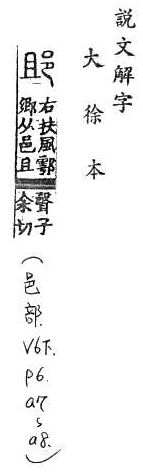 說文解字
大徐本
右扶風鄠
鄉从邑且
聲子
余切
(邑部. V6下. p6. a7~a8.)